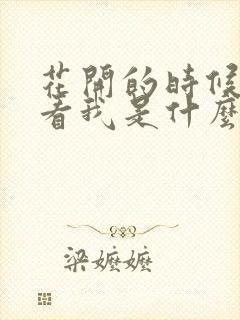 花開的時候
看我是什麼
梁嬤嬤